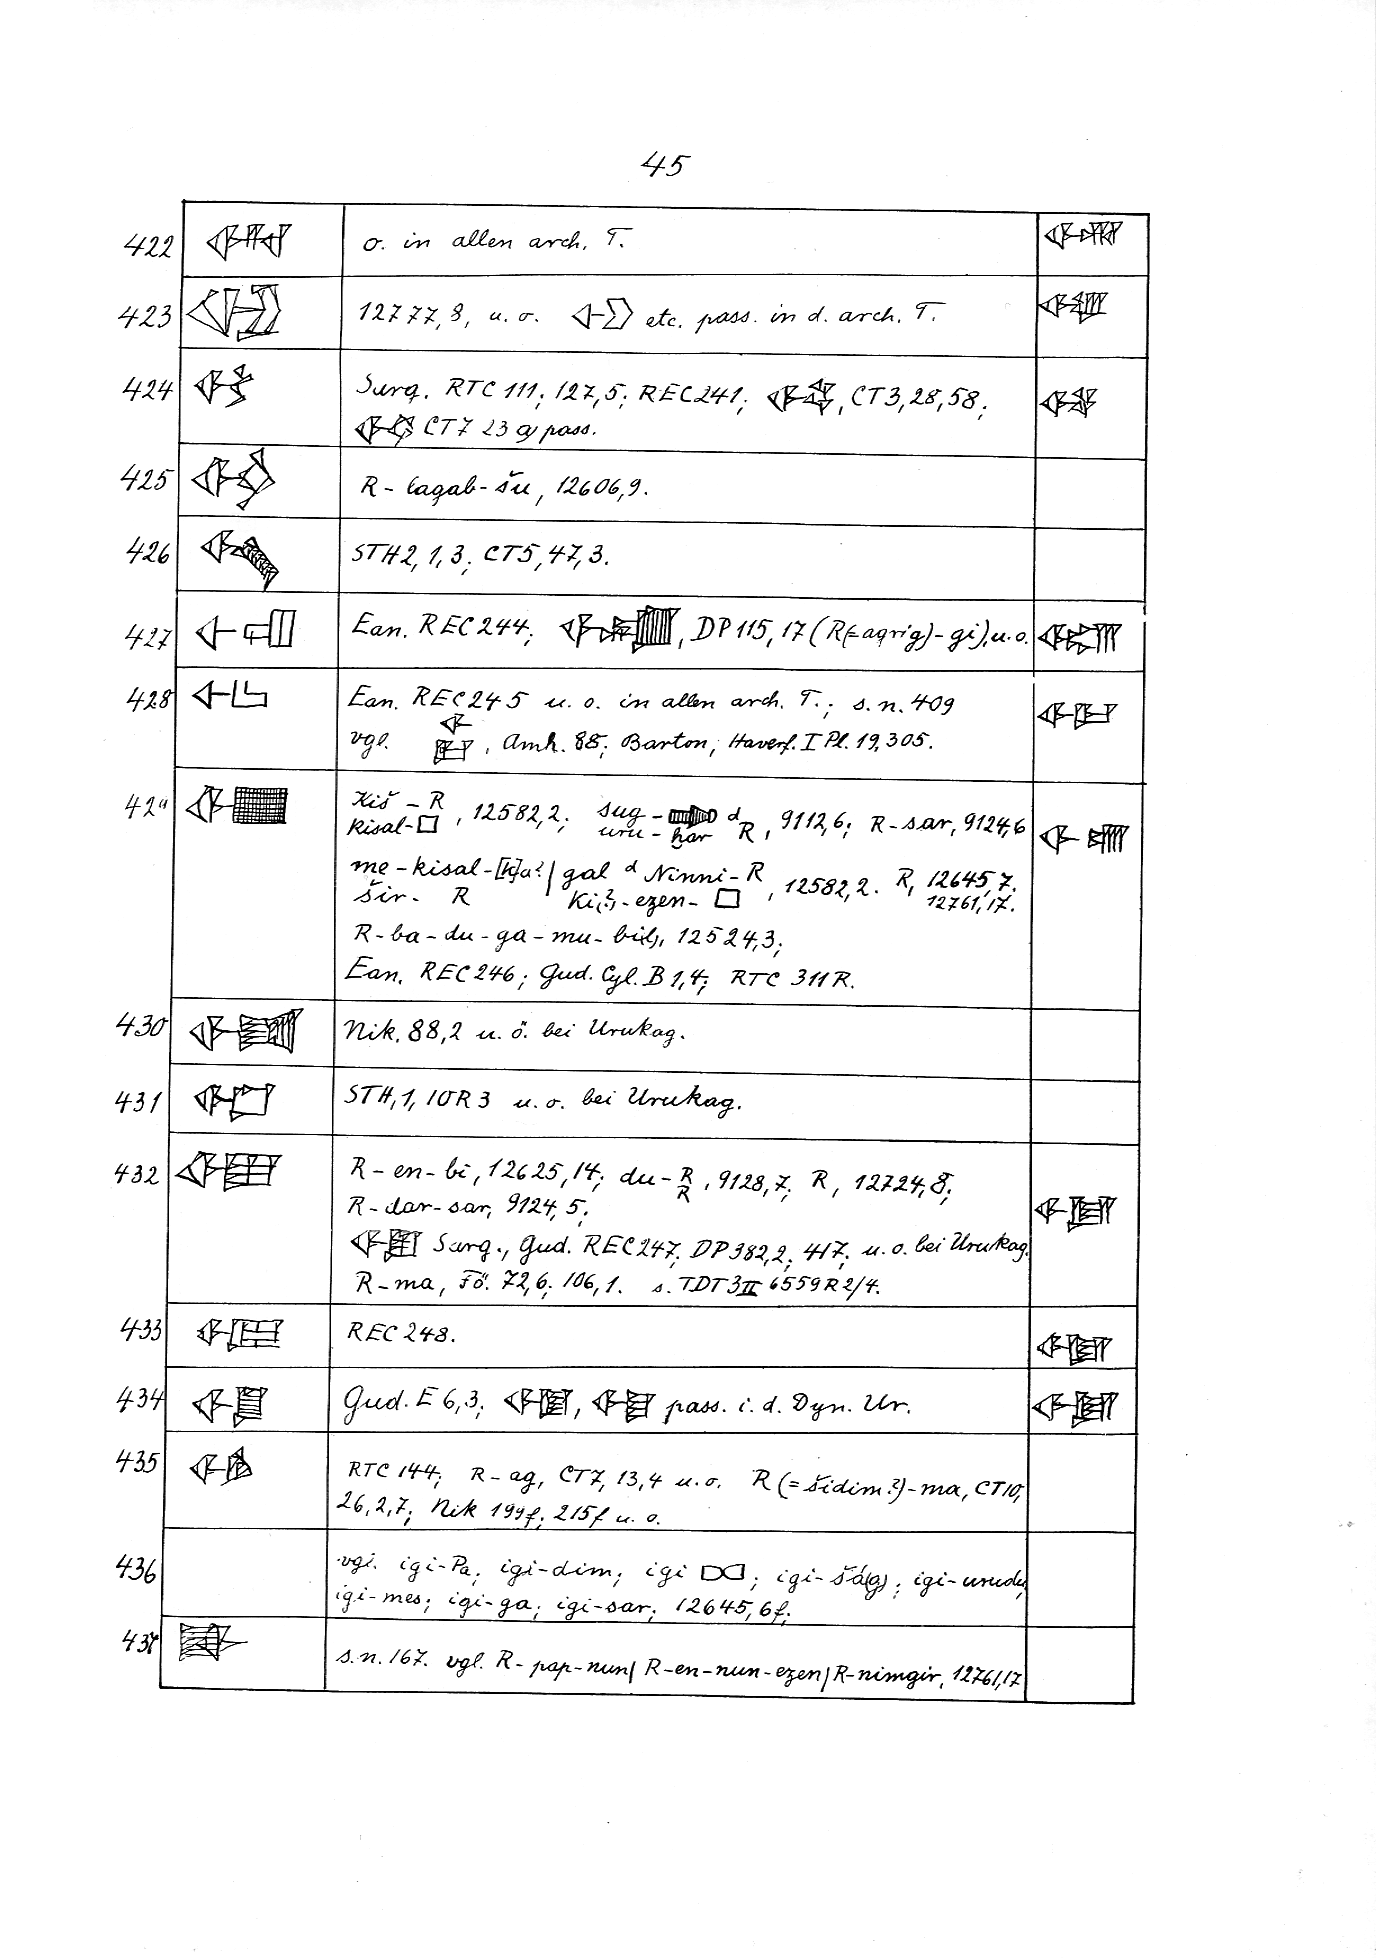 45
422 o. in allen arch. T.
423 12777,8, u. o. etc. pass. in d. arch. T.
424 Surg. RTC 111; 127,5; REC 241; , CT 3,28,58;
CT 7 23 a) pass.
425 R-lagab-šu, 12606,9.
426 STH 2,1,3; CT 5,47,3.
427 Ean. REC 244; , DP 115,17 (R(=agrig)-gi), u. o.
428 Ean. REC 245 u. o. in allen arch. T.; s. n. 409
vgl. , Amh. 88; Barton, Haverf. I Pl. 19,305.
429 Kiš-R , 12582,2; sug- d R, 9112,6; R-sar, 9124,6
kisal- uru-ḫar
me-kisal-[k]a?/ gal d Ninni-R , 12582,2. R, 12645,7.
šir-R Ki(?)-ezen- 12761,17.
R-ba-du-ga-mu-bi(?), 12524,3;
Ean. REC 246; Gud. Cyl. B 1,4; RTC 311 R.
430 Nik. 88,2 u. ö. bei Urukag.
431 STH, 1, 10 R 3 u. o. bei Urukag.
432 R-en-bi, 12625,14; du-R/R, 9128,7; R, 12724,8;
R-dar-sar, 9124,5;
Surg., Gud. REC 247; DP 382,2; 417; u. o. bei Urukag.
R-ma, Fö. 72,6; 106,1. s. TDT 3 II 6559 R 2/4.
433 REC 248.
434 Gud. E 6,3; , pass. i. d. Dyn. Ur.
435 RTC 144; R-ag, CT 7, 13,4 u. o. R (=šidim?)-ma, CT 10,
26,2,7; Nik 199f; 215f u. o.
436 vgl. igi-Pa; igi-dim; igi ; igi-šá(g); igi-urudu,
igi-mes; igi-ga; igi-sar; 12645,6f;
437 s. n. 167. vgl. R-pap-nun/ R-en-nun-ezen/ R-nimgir, 12761,17